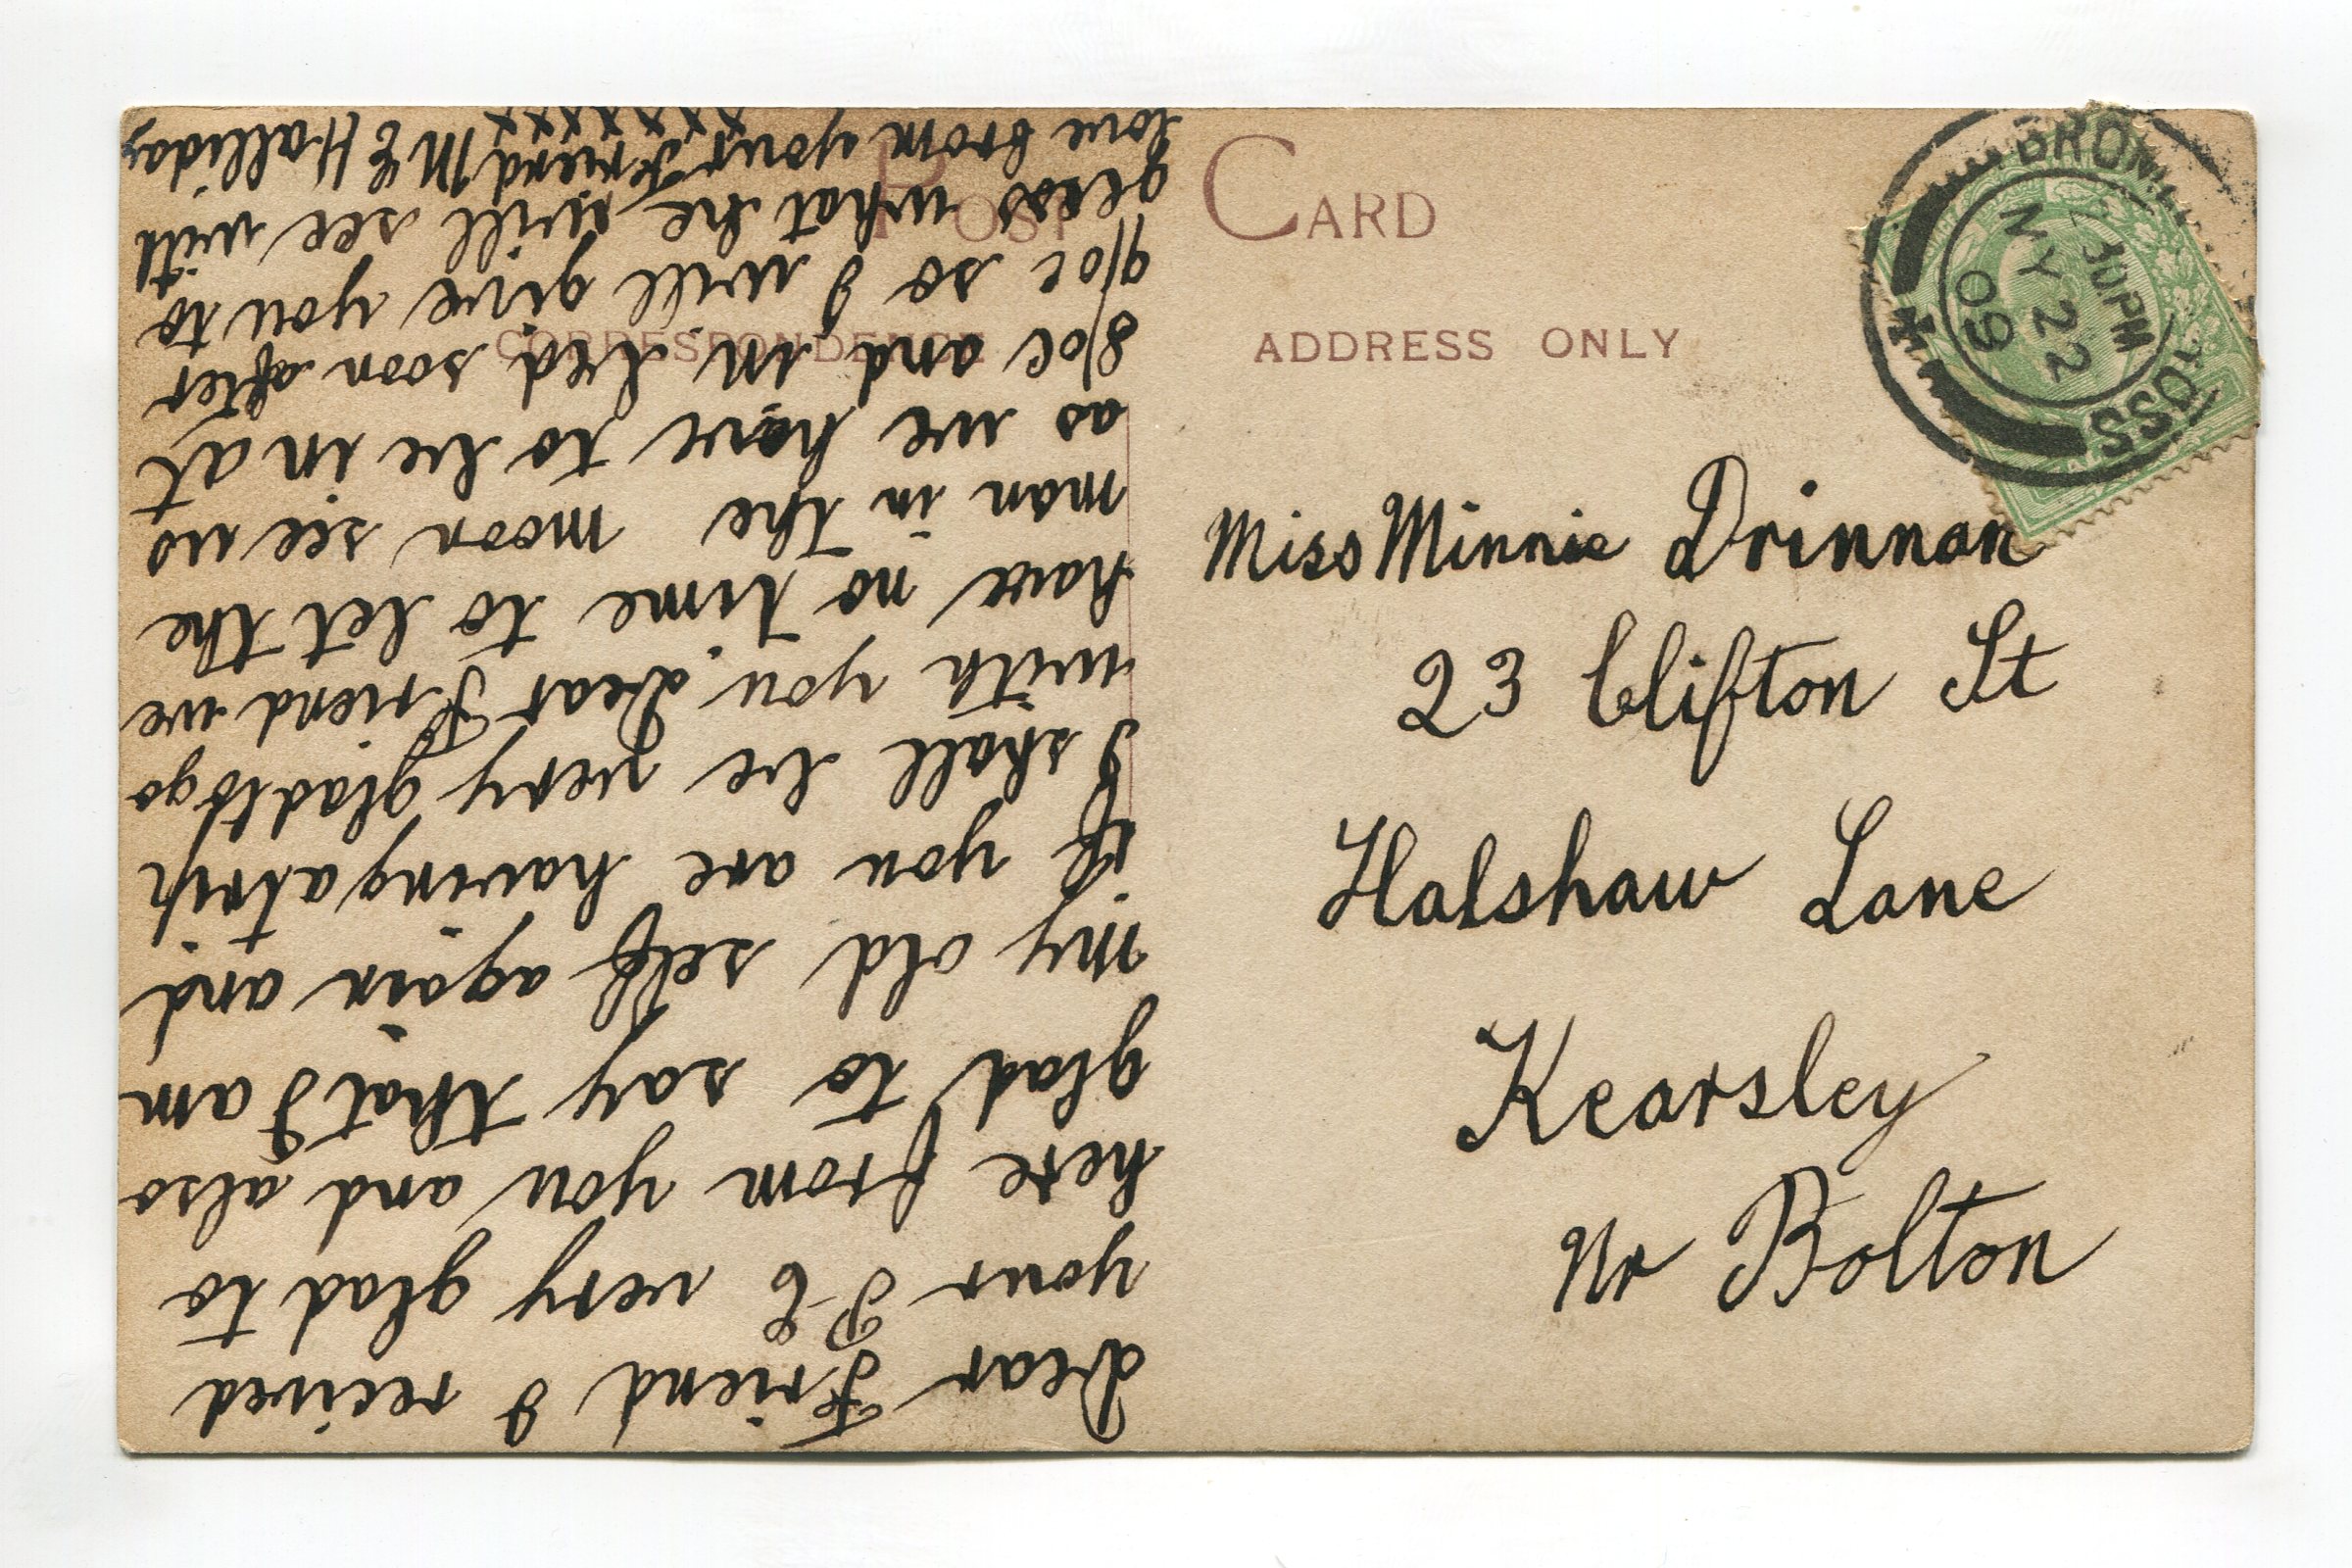 POST CARD
CORRESPONDENCE
ADDRESS ONLY
2 30PM
MY 22
09
Miss Minnie Drinnan
23 Clifton St
Halshaw Lane
Kearsley
Nr Bolton
Dear Friend I recived
your P-C very glad to
here from you and also
glad to say that I am
my old self again and
if you are having a trip
I shall be very glad to go
with you. Dear Friend we
have no time to let the
man in the moon see us
as we have to be in at
8/oc and in bed soon after
9/oc so I will give you to
gess what he will see with
love from your Friend M E Halliday
xxxxxxx